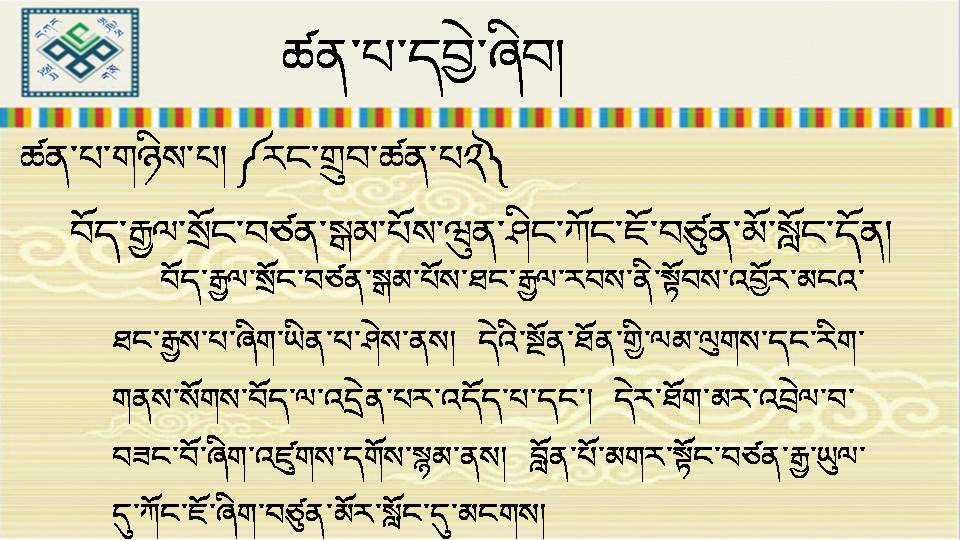 ཚན་པ་དབྱེ་ཞིབ།
ཚན་པ་གཉིས་པ། ༼རང་གྲུབ་ཚན་པ༢༽
བོད་རྒྱལ་སྲོང་བཙན་སྒམ་པོས་ཝུན་ཤིང་ཀོང་ཇོ་བཙུན་མོ་སློང་དོན།
བོད་རྒྱལ་སྲོང་བཙན་སྒམ་པོས་ཐང་རྒྱལ་རབས་ནི་སྟོབས་འབྱོར་མངའ་
ཐང་རྒྱས་པ་ཞིག་ཡིན་པ་ཤེས་ནས། དེའི་སྔོན་ཐོན་གྱི་ལམ་ལུགས་དང་རིག་
གནས་སོགས་བོད་ལ་འདྲེན་པར་འདོད་པ་དང་། དེར་ཐོག་མར་འབྲེལ་བ་
བཟང་པོ་ཞིག་འཛུགས་དགོས་སྙམ་ནས། བློན་པོ་མགར་སྟོང་བཙན་རྒྱ་ཡུལ་
དུ་ཀོང་ཇོ་ཞིག་བཙུན་མོར་སློང་དུ་མངགས།